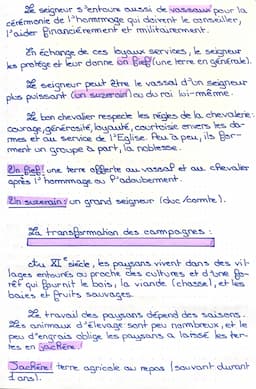 Le seigneur s'entoure aussi de vassaux pour la
cérémonie de l'hommage qui doivent le conseiller,
l'aider financièrement et militairement.
En échange de ces loyaux services, le seigneur
les protège et leur donne un fief (une terre en générale).
Le seigneur peut être le vassal d'un seigneur
plus puissant (un suzerain) ou du roi lui-même.
Le bon chevalier respecte les règles de la chevalerie:
courage, générosité, loyauté, courtoisie envers les da-
mes et au service de l'Eglise. Peu à peu, ils for-
ment un groupe à part, la noblesse.
Un fief: une terre offerte au vassal et au chevalier
après l'hommage ou l'adoubement.
Un suzerain: un grand seigneur (duc/comte).
La transformation des campagnes:
Au XIe siècle, les paysans vivent dans des vil-
lages entourés ou proche des cultures et d'une fo-
rêt qui fournit le bois, la viande (chasse), et les
baies et fruits sauvages.
Le travail des paysans dépend des saisons.
Les animaux d'élevage sont peu nombreux, et le
peu d'engrais oblige les paysans à laisser les ter-
res en jachère!
Jachère! terre agricole au repos (souvent durant
1 ans).